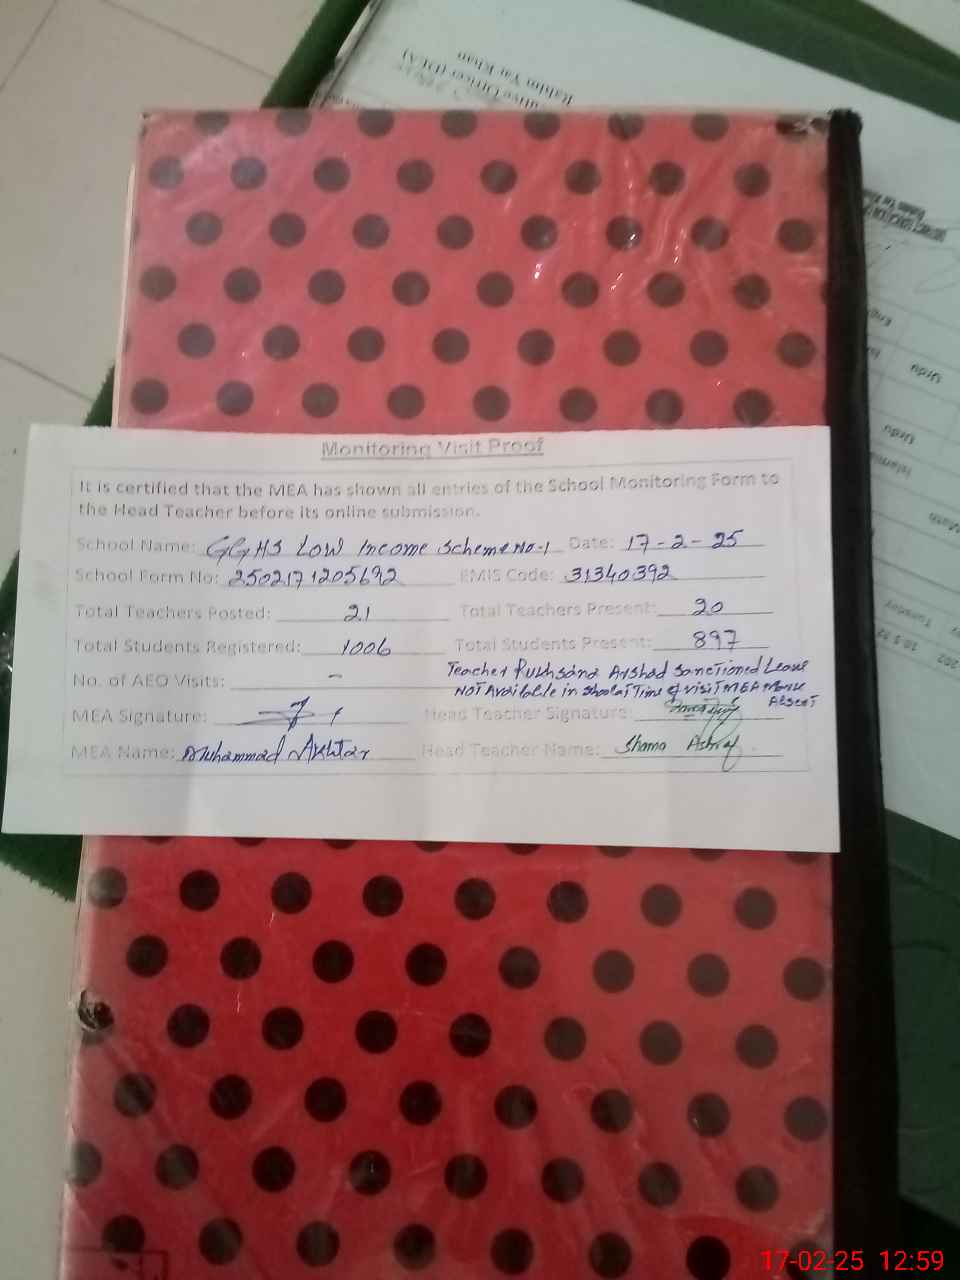 utive Officer (DEA)
Rahim Yar Khan
Urdu
Urdu
Islamia
Math
Tuesday
Monitoring Visit Proof
It is certified that the MEA has shown all entries of the School Monitoring Form to
the Head Teacher before its online submission.
School Name: GGHS Low Income Scheme No-1 Date: 17-2-25
School Form No: 2502171205692 EMIS Code: 31340392
Total Teachers Posted: 21 Total Teachers Present: 20
Total Students Registered: 1006 Total Students Present: 897
No. of AEO Visits: - Teacher Rukhsana Arshad Sanctioned Leave
NOT Available in School at Time of Visit MEA Mark
Absent
MEA Signature: Head Teacher Signature:
MEA Name: Muhammad Akhtar Head Teacher Name: Shama Ashraf
17-02-25 12:59